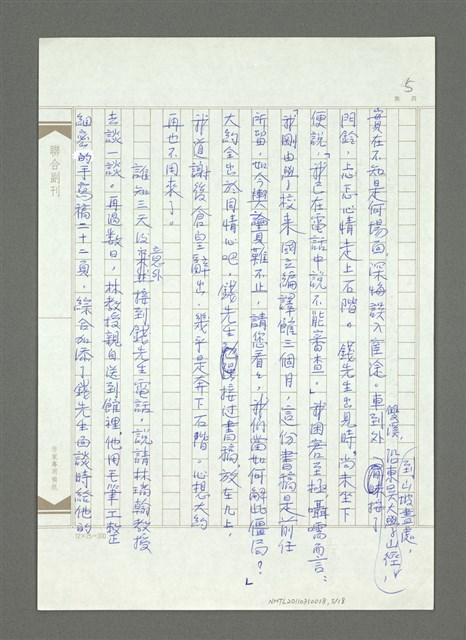 5
第 頁
實在不知是何場面，深悔誤入窄途。車到外雙溪，沿東吳大學山徑，
到山坡盡處，按了
門鈴，忐忑心情走上石階。錢先生出見時，尚未坐下
便說：「我已在電話中說不能審查。」我困窘至極，囁嚅而言：
「我剛由學校來國立編譯館三個月，這份書稿是前任
所留，如今輿論責難不止，請您看看，我們當如何解此僵局？」
大約全出於同情心吧，錢先生接過書稿，放在几上，
我道謝後倉皇辭出，幾乎是奔下石階。心想大約
再也不用來了。
誰知三天後意外接到錢先生電話，說請林瑞翰教授
去談一談。再過數日，林教授親自送到館裡，他用毛筆工整
細密的手寫稿二十二頁，綜合加添了錢先生面談時給他的
聯合副刊
作家專用稿紙
12×25=300
NMTL20110310018, 5/18